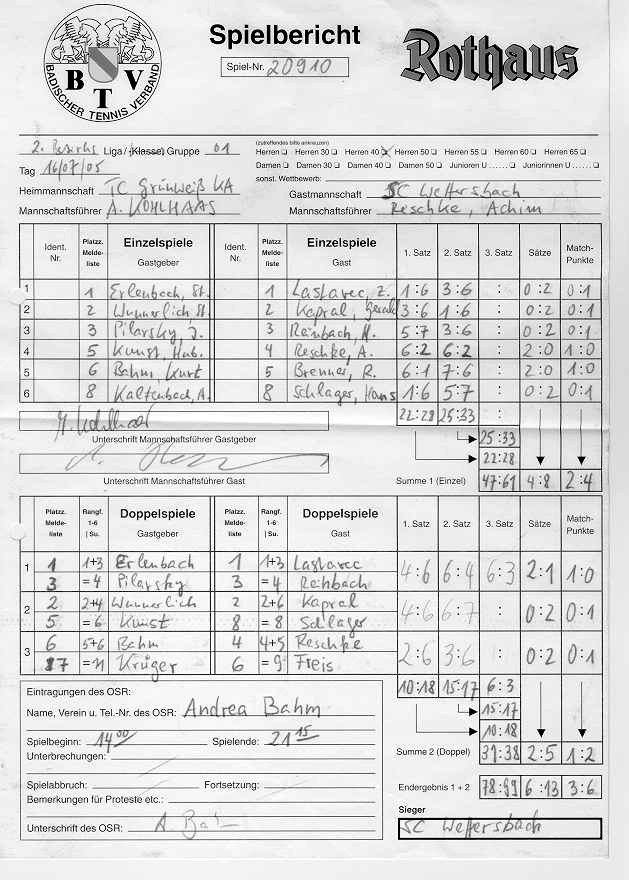 BADISCHER TENNIS VERBAND
B T V
Spielbericht
Rothaus
Spiel-Nr. 20910
(zutreffendes bitte ankreuzen)
2. Bezirks Liga / (Klasse) Gruppe 01
Herren Herren 30 Herren 40 x Herren 50 Herren 55 Herren 60 Herren 65
Damen Damen 30 Damen 40 Damen 50 Junioren U ...... Juniorinnen U ......
Tag 16/07/05
sonst. Wettbewerb:
Heimmannschaft TC Grünweiß KA
Gastmannschaft SC Wettersbach
Mannschaftsführer A. KOHLHAAS
Mannschaftsführer Reschke, Achim
Ident. Nr. Platzz. Melde-liste Einzelspiele Gastgeber Ident. Nr. Platzz. Melde-liste Einzelspiele Gast 1. Satz 2. Satz 3. Satz Sätze Match-Punkte
1 1 Erlenbach, St. 1 Lastavec, Z. 1:6 3:6 : 0:2 0:1
2 2 Wunnerlich, St. 2 Kapral, Gerald 3:6 1:6 : 0:2 0:1
3 3 Pilarsky, J. 3 Reinbach, H. 5:7 3:6 : 0:2 0:1
4 5 Kunst, Hub. 4 Reschke, A. 6:2 6:2 : 2:0 1:0
5 6 Bahm, Kurt 5 Brenner, R. 6:1 7:6 : 2:0 1:0
6 8 Kaltenbach, A. 8 Schlager, Hans 1:6 5:7 : 0:2 0:1
22:28 25:33 :
Unterschrift Mannschaftsführer Gastgeber
25:33
22:28
Unterschrift Mannschaftsführer Gast
Summe 1 (Einzel) 47:61 4:8 2:4
Platzz. Melde-liste Rangf. 1-6 | Su. Doppelspiele Gastgeber Platzz. Melde-liste Rangf. 1-6 | Su. Doppelspiele Gast 1. Satz 2. Satz 3. Satz Sätze Match-Punkte
1 1 1+3 Erlenbach 1 1+3 Lastavec 4:6 6:4 6:3 2:1 1:0
3 =4 Pilarsky 3 =4 Reinbach
2 2 2+4 Wunnerlich 2 2+6 Kapral 4:6 6:7 : 0:2 0:1
5 =6 Kunst 8 =8 Schlager
3 6 5+6 Bahm 4 4+5 Reschke 2:6 3:6 : 0:2 0:1
17 =11 Krüger 6 =9 Freis
10:18 15:17 6:3
Eintragungen des OSR:
Name, Verein u. Tel.-Nr. des OSR: Andrea Bahm
15:17
10:18
Spielbeginn: 14 00 Spielende: 21 15
Summe 2 (Doppel) 31:38 2:5 1:2
Unterbrechungen:
Spielabbruch: Fortsetzung:
Endergebnis 1 + 2 78:99 6:13 3:6
Bemerkungen für Proteste etc.:
Sieger
SC Wettersbach
Unterschrift des OSR: